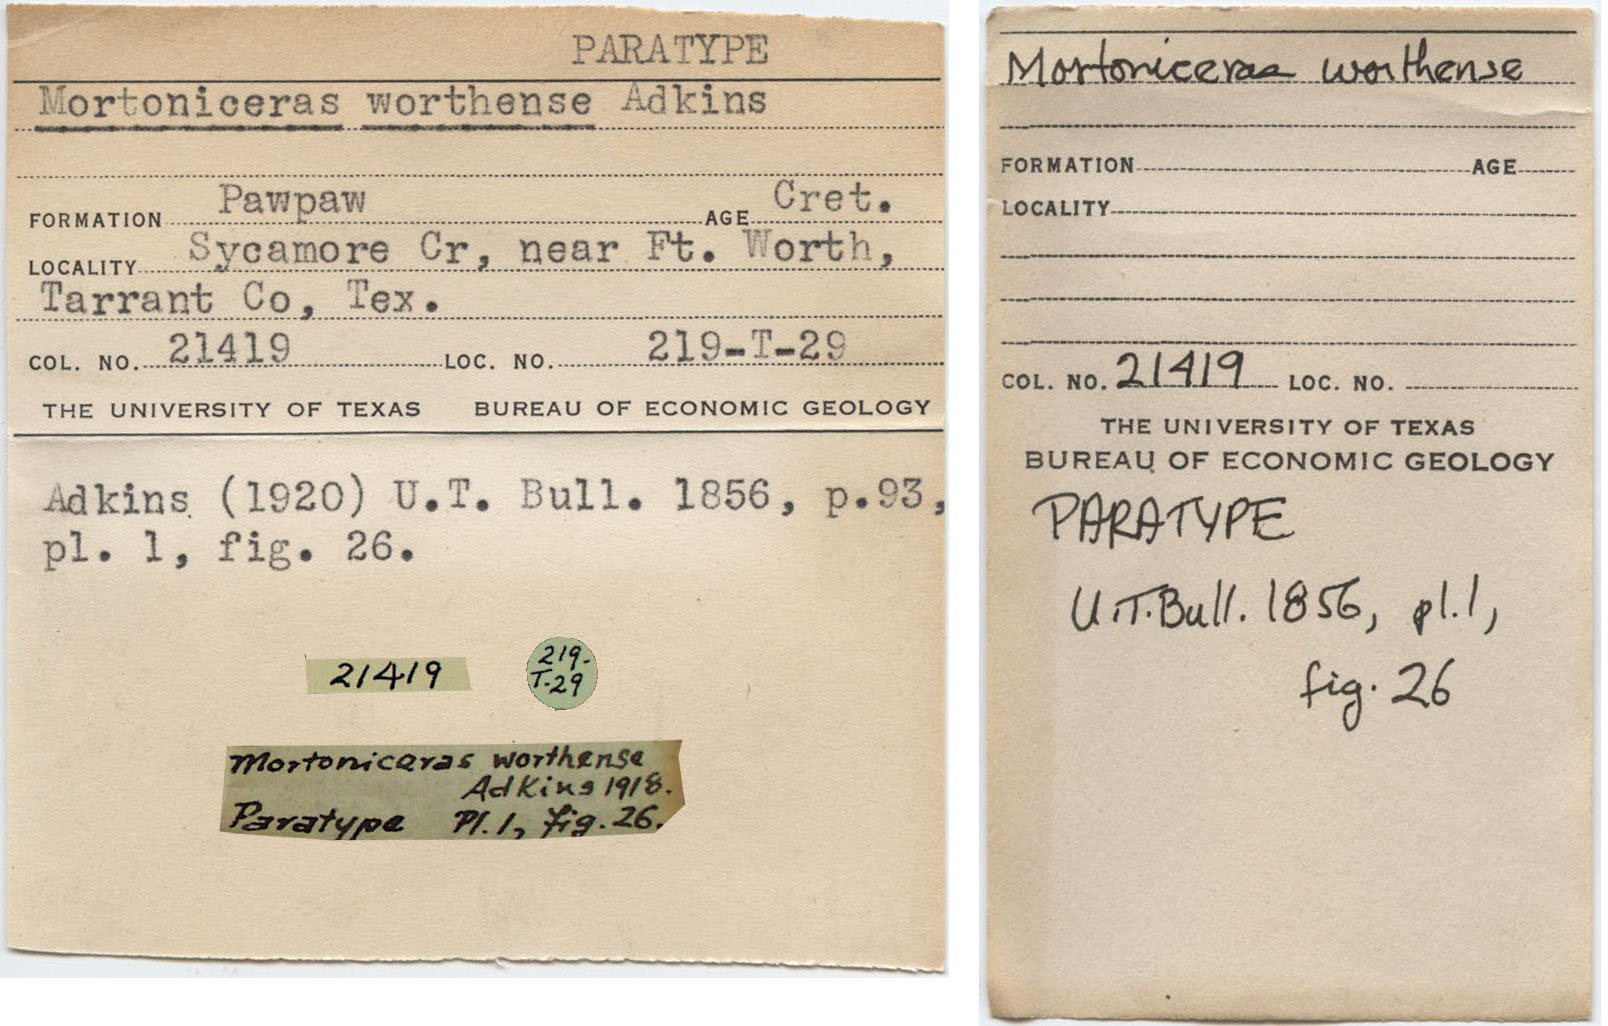 PARATYPE
Mortoniceras worthense Adkins
FORMATION Pawpaw AGE Cret.
LOCALITY Sycamore Cr, near Ft. Worth,
Tarrant Co, Tex.
COL. NO. 21419 LOC. NO. 219-T-29
THE UNIVERSITY OF TEXAS BUREAU OF ECONOMIC GEOLOGY
Adkins (1920) U.T. Bull. 1856, p.93,
pl. 1, fig. 26.
21419
219-
T-29
Mortoniceras worthense
Adkins 1918.
Paratype Pl.1, fig. 26.
Mortoniceras worthense
FORMATION AGE
LOCALITY
COL. NO. 21419 LOC. NO.
THE UNIVERSITY OF TEXAS
BUREAU OF ECONOMIC GEOLOGY
PARATYPE
U.T. Bull. 1856, pl. 1,
fig. 26